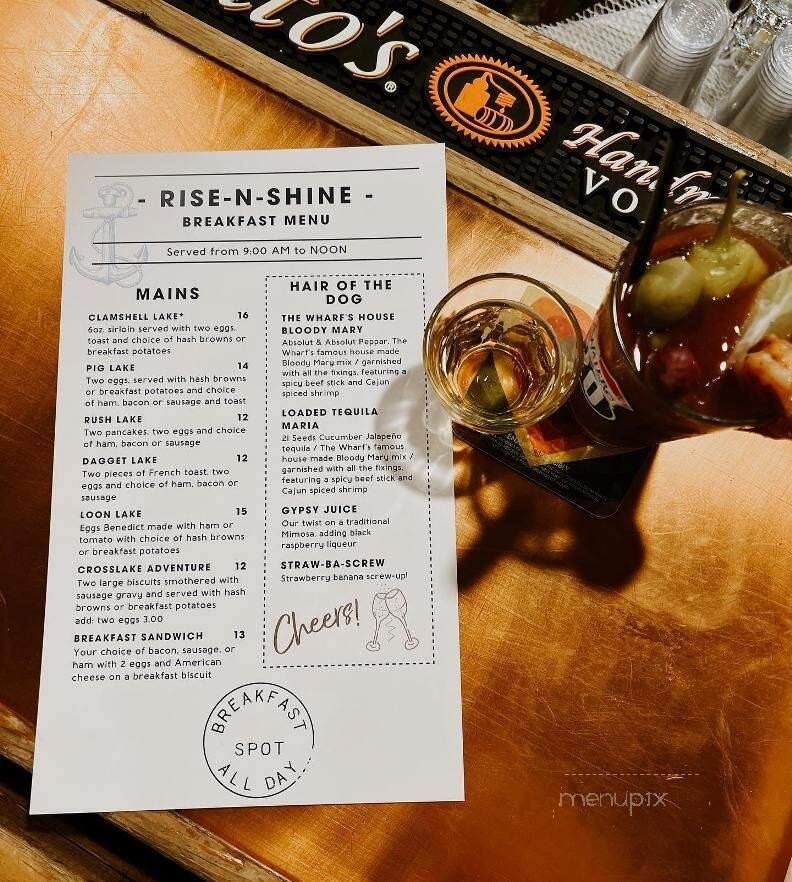 ito's®
Handm
VO
- RISE-N-SHINE -
BREAKFAST MENU
Served from 9:00 AM to NOON
MAINS
CLAMSHELL LAKE* 16
6oz. sirloin served with two eggs,
toast and choice of hash browns or
breakfast potatoes
PIG LAKE 14
Two eggs, served with hash browns
or breakfast potatoes and choice
of ham, bacon or sausage and toast
RUSH LAKE 12
Two pancakes, two eggs and choice
of ham, bacon or sausage
DAGGET LAKE 12
Two pieces of French toast, two
eggs and choice of ham, bacon or
sausage
LOON LAKE 15
Eggs Benedict made with ham or
tomato with choice of hash browns
or breakfast potatoes
CROSSLAKE ADVENTURE 12
Two large biscuits smothered with
sausage gravy and served with hash
browns or breakfast potatoes
add: two eggs 3.00
BREAKFAST SANDWICH 13
Your choice of bacon, sausage, or
ham with 2 eggs and American
cheese on a breakfast biscuit
HAIR OF THE
DOG
THE WHARF'S HOUSE
BLOODY MARY
Absolut & Absolut Peppar, The
Wharf's famous house made
Bloody Mary mix / garnished
with all the fixings, featuring a
spicy beef stick and Cajun
spiced shrimp
LOADED TEQUILA
MARIA
21 Seeds Cucumber Jalapeño
tequila / The Wharf's famous
house made Bloody Mary mix /
garnished with all the fixings,
featuring a spicy beef stick and
Cajun spiced shrimp
GYPSY JUICE
Our twist on a traditional
Mimosa, adding black
raspberry liqueur
STRAW-BA-SCREW
Strawberry banana screw-up!
Cheers!
BREAKFAST
SPOT
ALL DAY
menupix